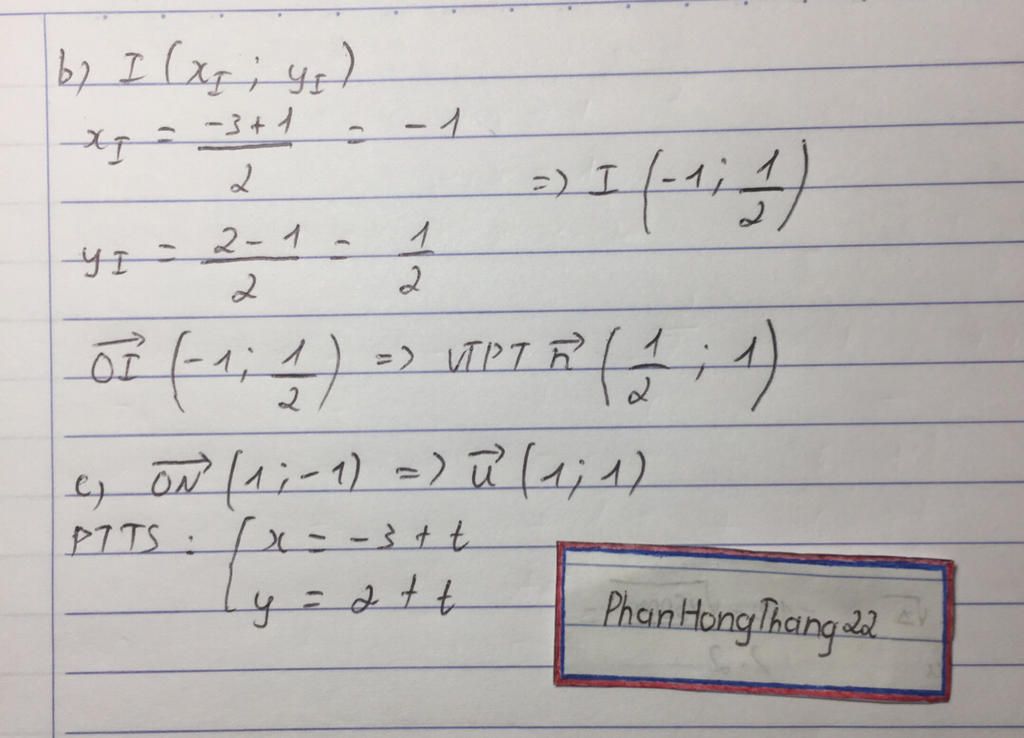 b) I (x_I ; y_I)
x_I = \frac{-3+1}{2} = -1
=> I (-1; \frac{1}{2})
y_I = \frac{2-1}{2} = \frac{1}{2}
\vec{OI} (-1; \frac{1}{2}) => VTPT \vec{n} (\frac{1}{2} ; 1)
c) \vec{ON} (1;-1) => \vec{u} (1; 1)
PTTS : { x = -3 + t
y = 2 + t
PhanHongThang22